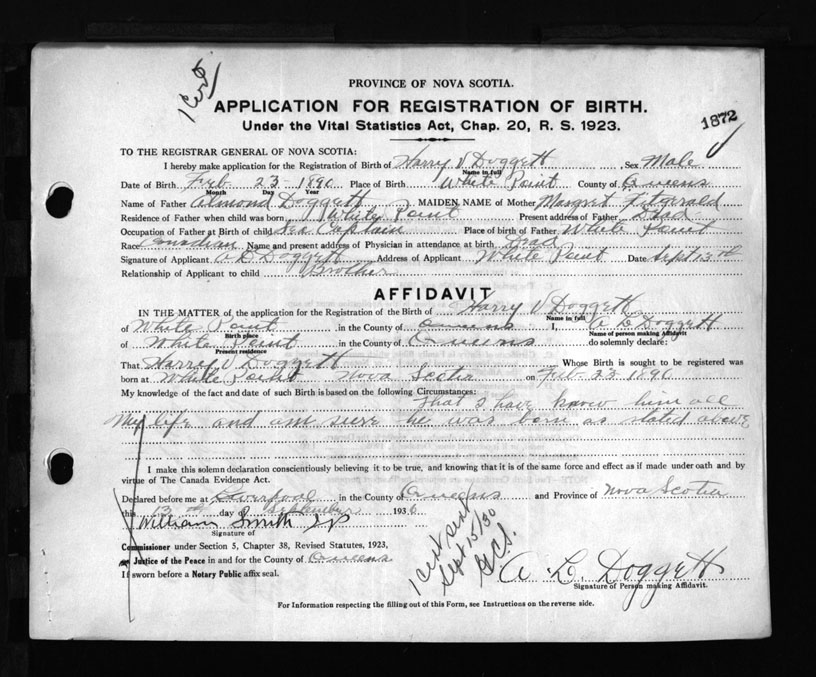 (Cert)
PROVINCE OF NOVA SCOTIA.
APPLICATION FOR REGISTRATION OF BIRTH.
Under the Vital Statistics Act, Chap. 20, R. S. 1923.
1872
TO THE REGISTRAR GENERAL OF NOVA SCOTIA:
I hereby make application for the Registration of Birth of Harry V Doggett Sex Male
Name in full
Date of Birth Feb 23 - 1890 Place of Birth White Point County of Queens
Month Day Year
Name of Father Almond Doggett MAIDEN NAME of Mother Margret Fitgerald
Residence of Father when child was born White Point Present address of Father Dead
Occupation of Father at Birth of child Sea Captain Place of birth of Father White Point
Race Canadian Name and present address of Physician in attendance at birth Dead
Signature of Applicant A L Doggett Address of Applicant White Point Date Sept 13th
Relationship of Applicant to child Brother
AFFIDAVIT
IN THE MATTER of the application for the Registration of the Birth of Harry V Doggett
Name in full
of White Point , in the County of Queens I, A L Doggett
Birth place Name of person making Affidavit
of White Point , in the County of Queens do solemnly declare:
Present residence
That Harry V Doggett Whose Birth is sought to be registered was
born at White Point Nova Scotia on Feb 23 - 1890
My knowledge of the fact and date of such Birth is based on the following Circumstances:
That I have know him all
My life and am sure he was born as stated above
I make this solemn declaration conscientiously believing it to be true, and knowing that it is of the same force and effect as if made under oath and by
virtue of The Canada Evidence Act.
Declared before me at Liverpool in the County of Queens and Province of Nova Scotia
this 13th day of September 1936
William Smith JP
Signature of
Commissioner under Section 5, Chapter 38, Revised Statutes, 1923,
or Justice of the Peace in and for the County of Queens
If sworn before a Notary Public affix seal.
1 Cert sent
Sept 15/30
A L Doggett
Signature of Person making Affidavit.
For Information respecting the filling out of this Form, see Instructions on the reverse side.